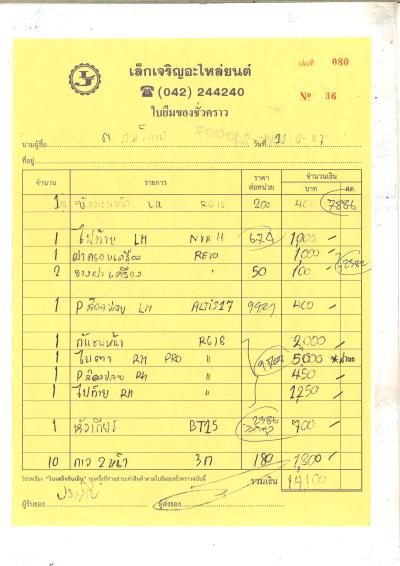 เล่มที่ 080
เล็กเจริญอะไหล่ยนต์
☎ (042) 244240
№ 36
ใบยืมของชั่วคราว
นามผู้ซื้อ วันที่
ที่อยู่
จำนวน รายการ ราคา ต่อหน่วย จำนวนเงิน บาท สต.
1 LR RG18 200 400 7886
1 ไฟท้าย LH NVR 11 674 1,900
1 ฝาครอบเครื่อง REVO 1,000
2 ยางฝาเครื่อง " 50 100
1 LH ALTIS17 9921 400
1 กันชนหน้า RG18 2,000
1 ไฟตา RH PRO " 5,000
1 RH " 450
1 ไฟท้าย RH " 1,250
1 หัวเกียร์ BT25 2386 700
10 กาว 2 หน้า 3M 180 1,800
โปรดเรียก "ใบเสร็จรับเงิน" ทุกครั้งที่ท่านชำระค่าสินค้าตามใบยืมของชั่วคราวฉบับนี้
รวมเงิน 14,100
ผู้รับของ ผู้ส่งของ